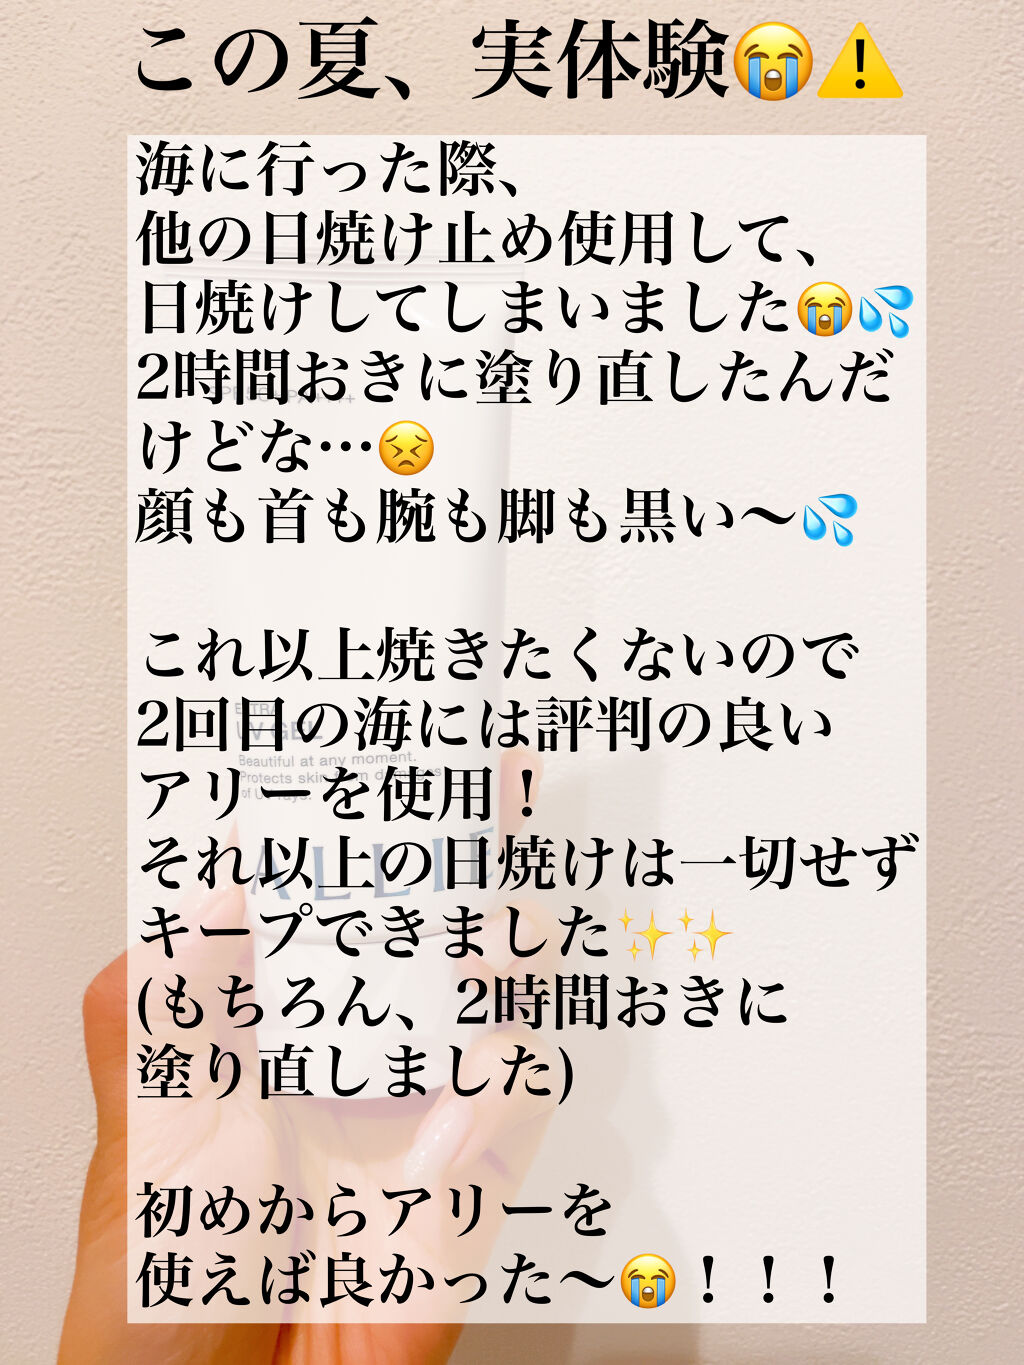 この夏、実体験😭⚠️
海に行った際、
他の日焼け止め使用して、
日焼けしてしまいました😭💦
2時間おきに塗り直したんだ
けどな…😣
顔も首も腕も脚も黒い〜💦
これ以上焼きたくないので
2回目の海には評判の良い
アリーを使用！
それ以上の日焼けは一切せず
キープできました✨✨
(もちろん、2時間おきに
塗り直しました)
初めからアリーを
使えば良かった〜😭！！！
EXTRA
UV GEL
Beautiful at any moment.
Protects skin from damages
of UV rays.
ALLIE